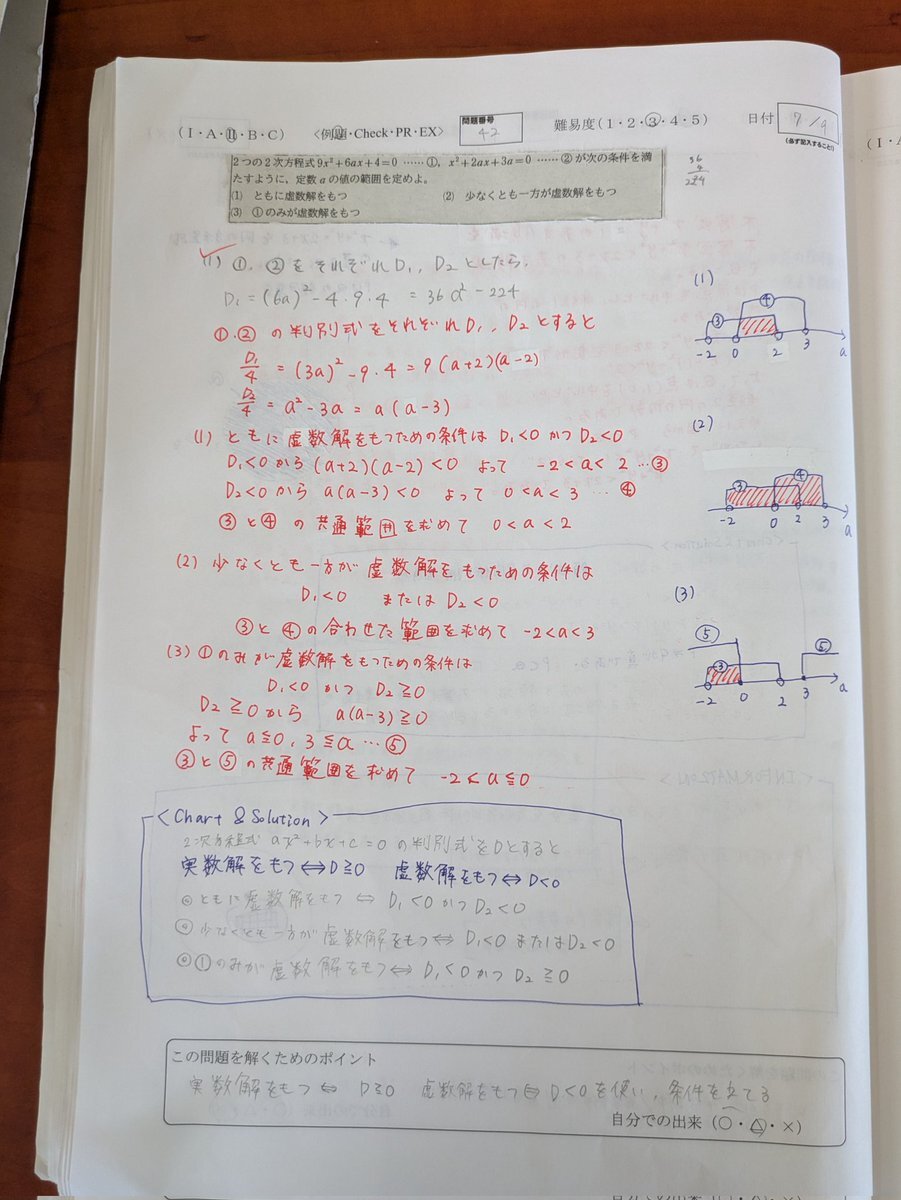 (I・A・Ⅱ・B・C) 〈例題・Check・PR・EX〉 問題番号 42 難易度(1・2・③・4・5) 日付 7/9
(必ず記入すること!)
2つの2次方程式 9x²+6ax+4=0 ……①, x²+2ax+3a=0 ……② が次の条件を満
たすように，定数 a の値の範囲を定めよ。
(1) ともに虚数解をもつ (2) 少なくとも一方が虚数解をもつ
(3) ①のみが虚数解をもつ
36
4
224
(1) ①, ②をそれぞれD₁, D₂としたら,
D₁=(6a)²-4・9・4 =36a²-224
①.②の判別式をそれぞれD₁, D₂とすると
D₁/4 =(3a)²-9・4=9(a+2)(a-2)
D₂/4 =a²-3a=a(a-3)
(1) ともに虚数解をもつための条件は D₁<0かつD₂<0
D₁<0から (a+2)(a-2)<0 よって -2<a<2 …③
D₂<0から a(a-3)<0 よって 0<a<3 …④
③と④の共通範囲を求めて 0<a<2
(2) 少なくとも一方が虚数解をもつための条件は
D₁<0 または D₂<0
③と④の合わせた範囲を求めて -2<a<3
(3) ①のみが虚数解をもつための条件は
D₁<0 かつ D₂≧0
D₂≧0から a(a-3)≧0
よって a≦0, 3≦a …⑤
③と⑤の共通範囲を求めて -2<a≦0
(1)
③ ④
-2 0 2 3 a
(2)
③ ④
-2 0 2 3 a
(3)
⑤ ③ ⑤
-2 0 2 3 a
<Chart & Solution>
2次方程式 ax²+bx+c=0 の判別式をDとすると
実数解をもつ⇔D≧0 虚数解をもつ⇔D<0
◎ともに虚数解をもつ ⇔ D₁<0かつD₂<0
◎少なくとも一方が虚数解をもつ⇔D₁<0またはD₂<0
◎①のみが虚数解をもつ⇔D₁<0かつD₂≧0
この問題を解くためのポイント
実数解をもつ⇔ D≧0 虚数解をもつ⇔D<0を使い, 条件を立てる
自分での出来 (○・△・×)